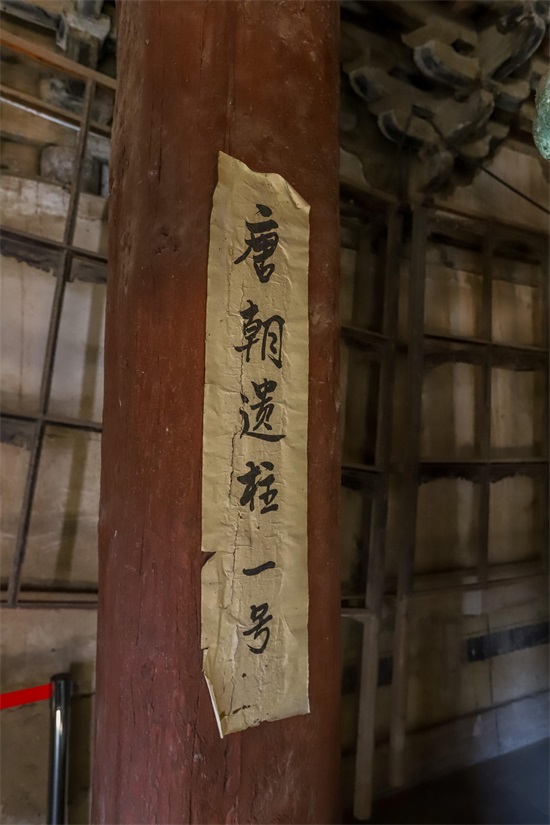 唐朝遗柱一号